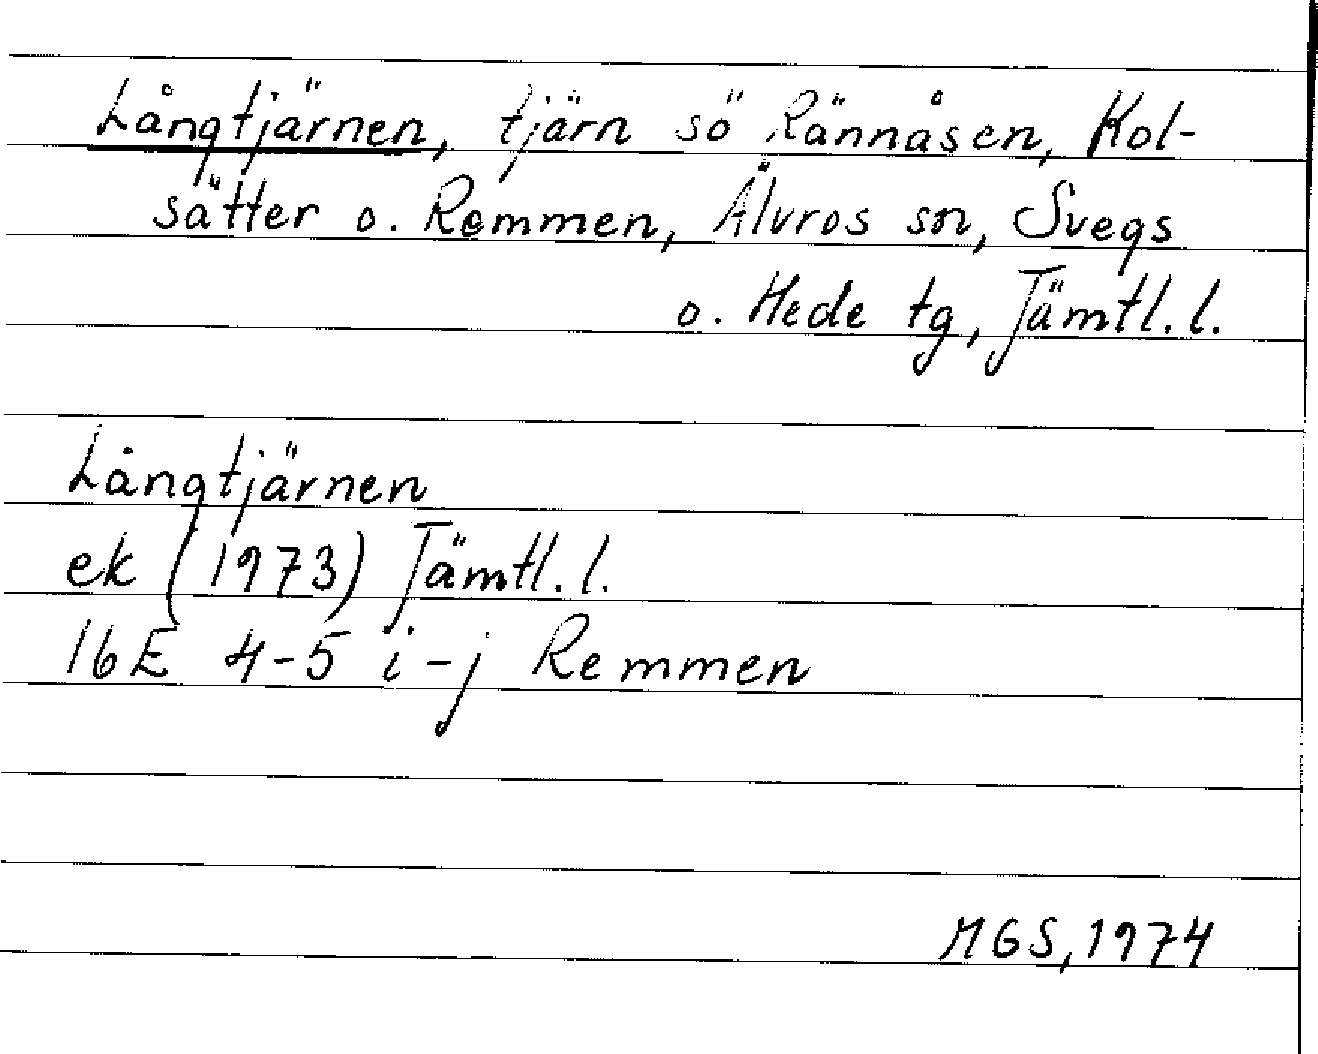 Långtjärnen, tjärn sö Rännåsen, Kol-
sätter o. Remmen, Älvros sn, Svegs
o. Hede tg, Jämtl. l.
Långtjärnen
ek (1973) Jämtl. l.
16E 4-5 i-j Remmen
MGS, 1974